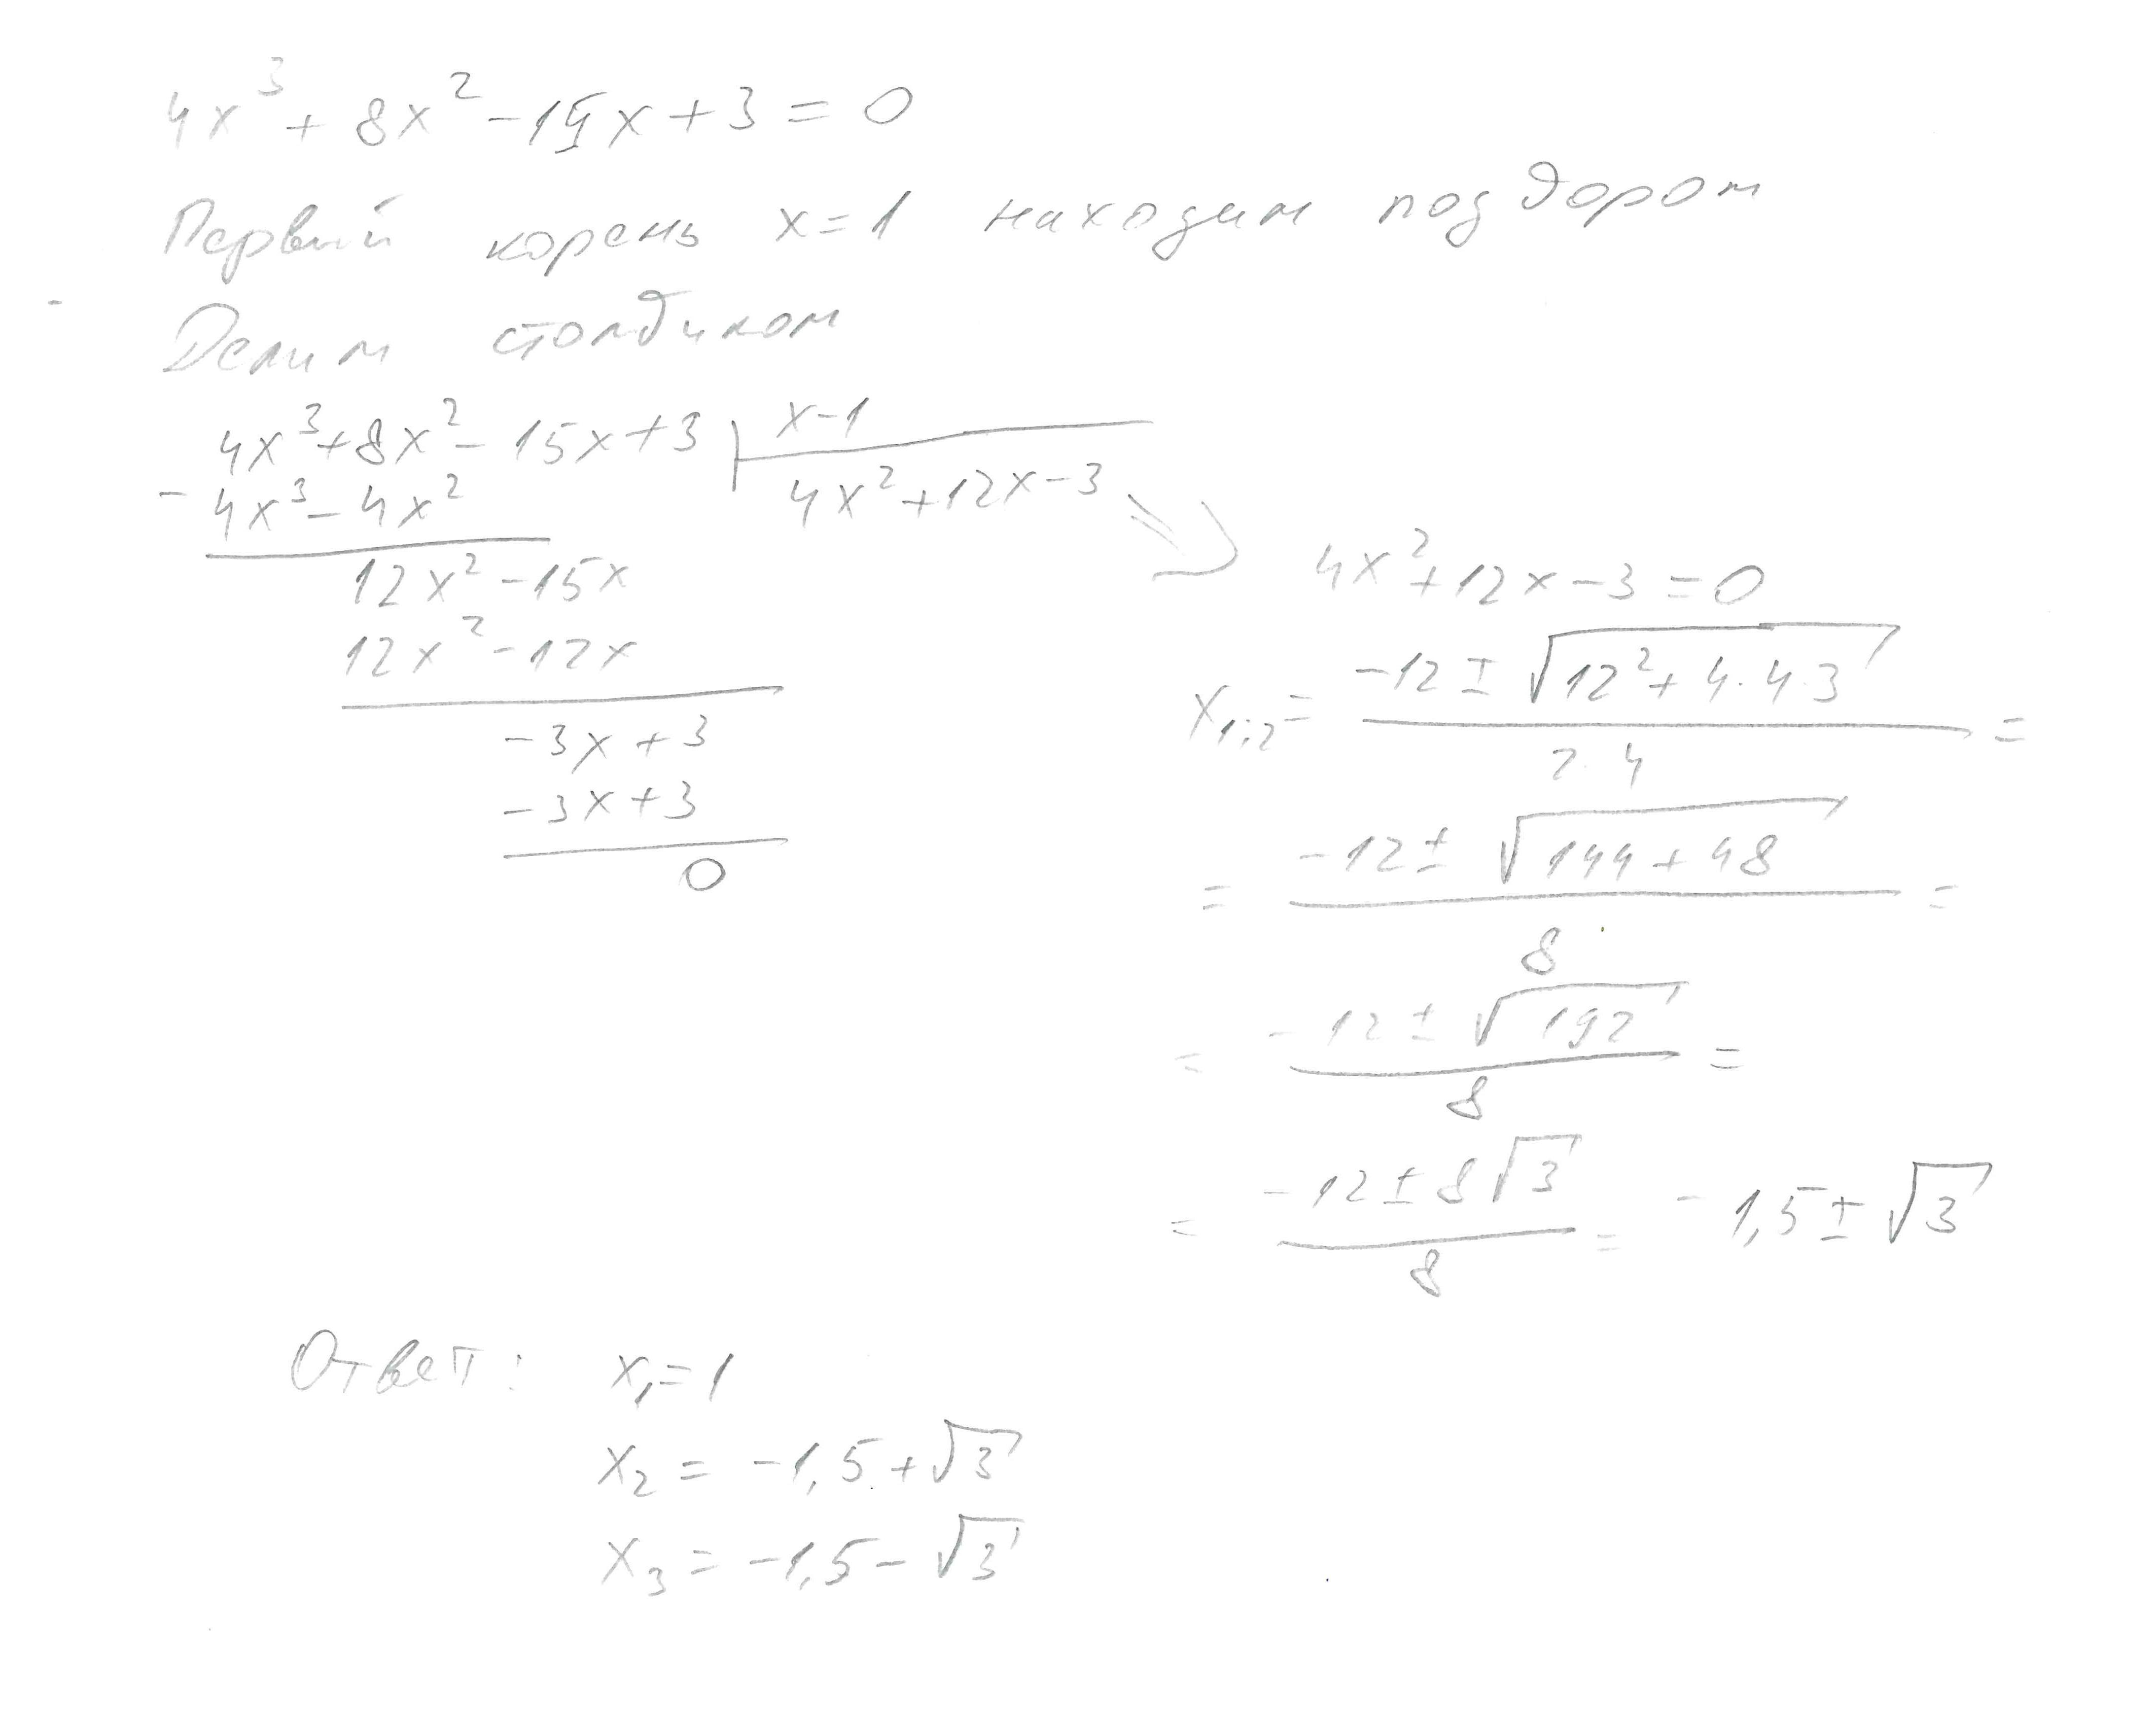 4x³ + 8x² - 15x + 3 = 0
Первый корень x = 1 находим подбором
Делим столбиком
4x³ + 8x² - 15x + 3 | x - 1
- 4x³ - 4x² | 4x² + 12x - 3 ⇒
12x² - 15x
12x² - 12x
-3x + 3
-3x + 3
0
4x² + 12x - 3 = 0
x₁,₂ = (-12 ± √(12² + 4·4·3)) / (2·4) =
= (-12 ± √(144 + 48)) / 8 =
= (-12 ± √192) / 8 =
= (-12 ± 8√3) / 8 = -1,5 ± √3
Ответ: x₁ = 1
x₂ = -1,5 + √3
x₃ = -1,5 - √3